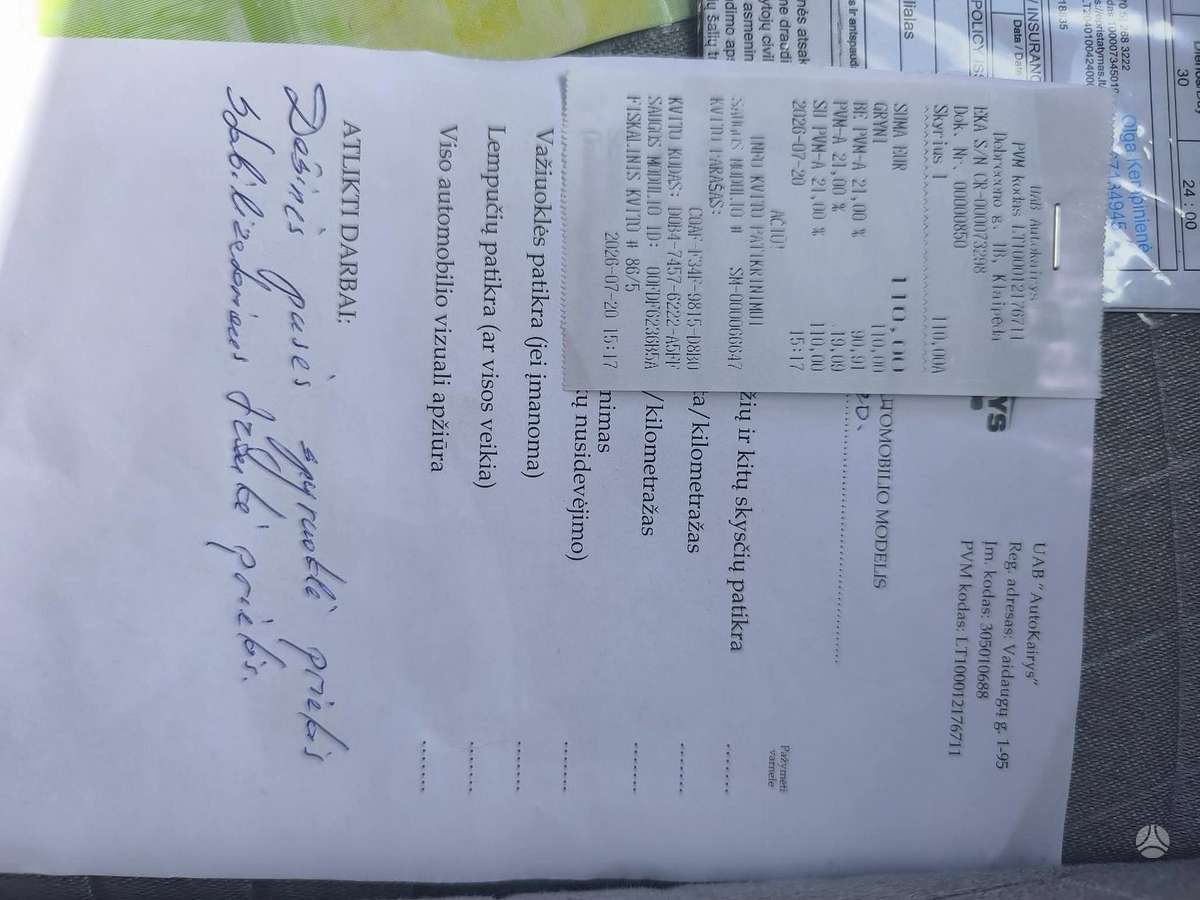 UAB "AutoKairys"
Reg. adresas: Vaidaugų g. 1-95
Įm. kodas: 305010688
PVM kodas: LT100012176711
UAB Autokairys
PVM kodas LT100012176711
Debreceno g. 1B, Klaipėda
EKA S/N CR-0000073298
Dok. Nr. 00000850
Skyrius 1 110,00A
SUMA EUR 110,00
GRYNI 110,00
BE PVM-A 21,00 % 90,91
PVM-A 21,00 % 19,09
SU PVM-A 21,00 % 110,00
2026-07-20 15:17
AČIŪ!
INFO KVITO PATIKRINIMUI
SAUGUS MODULIO # SM-0000G6647
KVITO PARAŠAS:
KVITO KODAS:
SAUGUS MODULIO ID:
FISKALINIS KVITO # 8675
2026-07-20 15:17
YS
AUTOMOBILIO MODELIS
Pažymėti
varnele
žių ir kitų skysčių patikra
ta/kilometražas
/kilometražas
nimas
ų nusidevėjimo)
Važiuoklės patikra (jei įmanoma)
Lempučių patikra (ar visos veikia)
Viso automobilio vizuali apžiūra
ATLIKTI DARBAI:
Dešinės pusės spyruoklė priekis
Stabilizatoriaus traukė priekis.
POLICY ISS
INSURANC
Data / Date
ialas
30
24 : 00
Olga